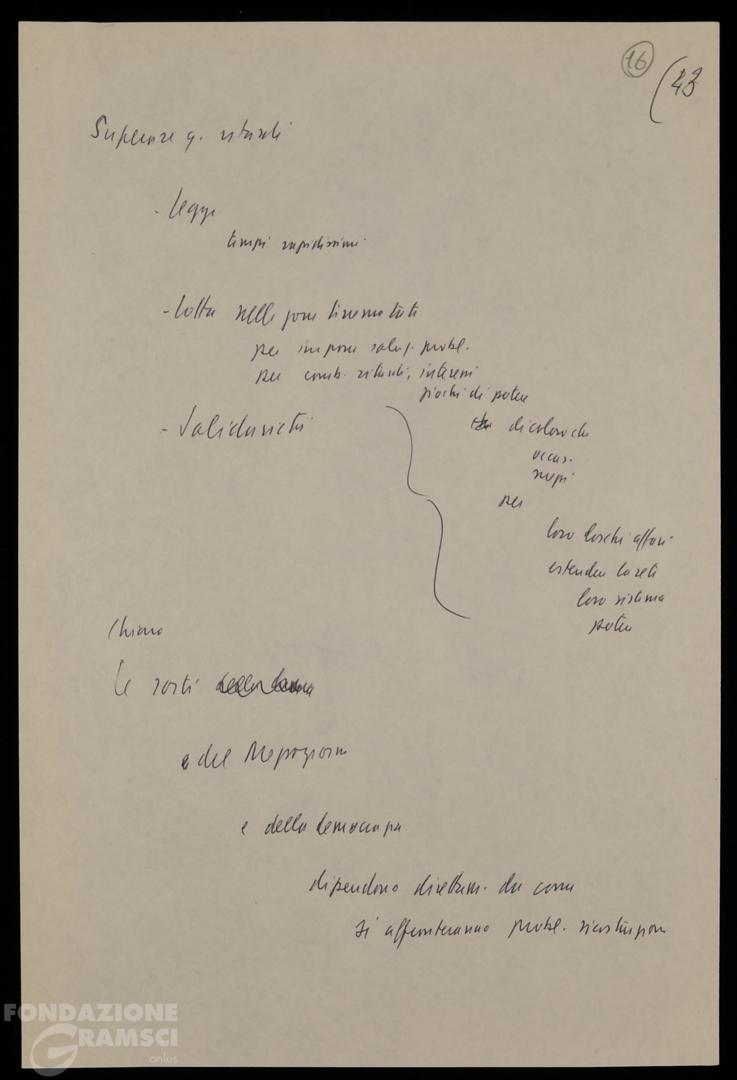 16
(43
Superare q. ritardi
- legge
tempi rapidissimi
- lotta nelle zone terremotate
per imporre soluz. probl.
per comb. ritardi, interessi
giochi di potere
di coloro che
occas.
per
loro loschi affari
estendere la rete
loro sistema
potere
- Solidarietà
Chiaro
le sorti
e del Mezzogiorno
e della democrazia
dipendono direttam. da come
si affronteranno probl. ricostruzione
FONDAZIONE
GRAMSCI
onlus